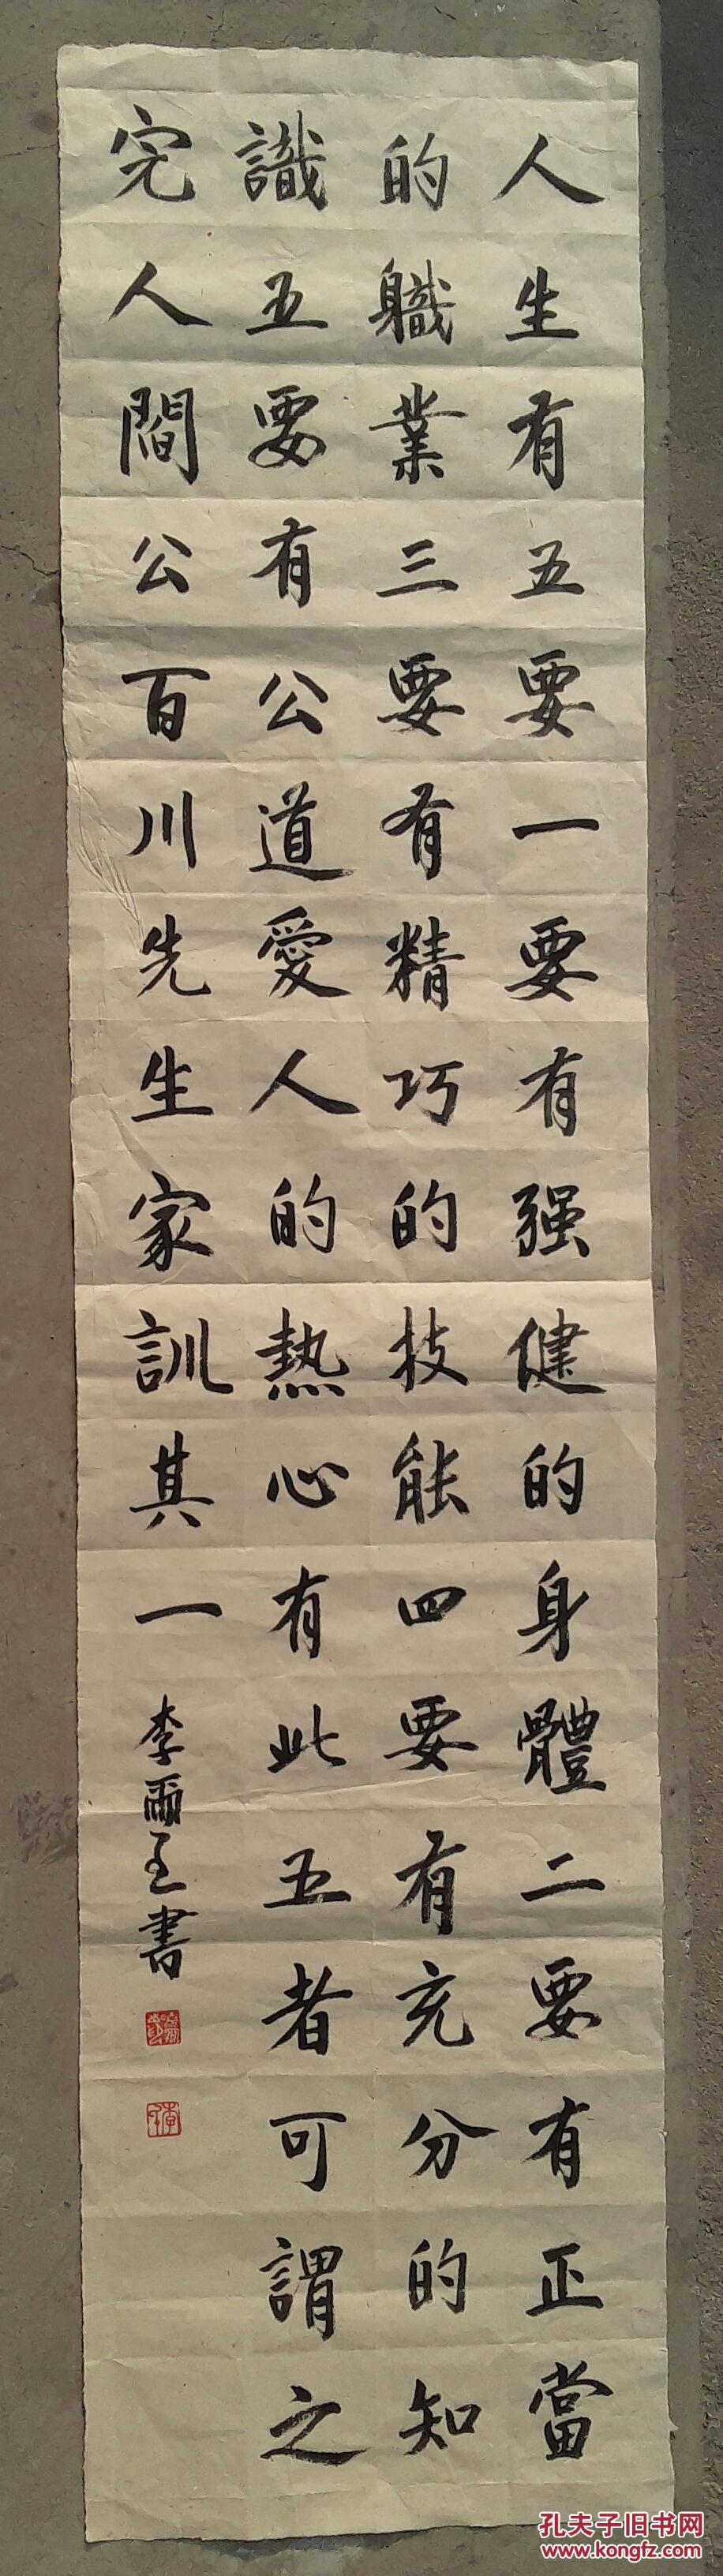 人生有五要一要有强健的身體二要有正當
的職業三要有精巧的技能四要有充分的知
識五要有公道愛人的熱心有此五者可謂之
完人 間公百川先生家訓其一
李爾王書
孔夫子旧书网
www.kongfz.com